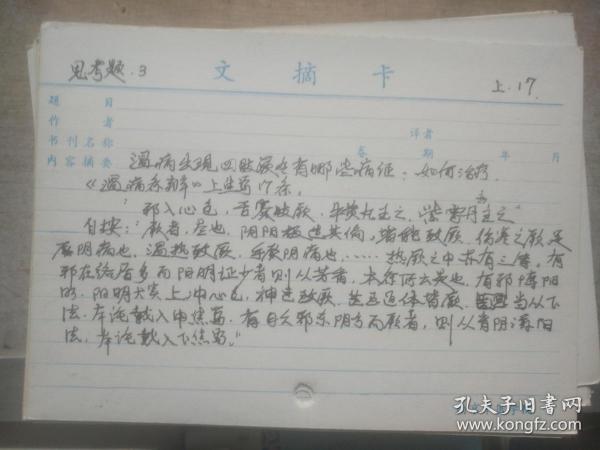 思考题.3 文摘卡 上.17
题 目
作 者 译者
书刊名称 卷 期 年 月
内容摘要 温病出现四肢厥冷有哪些病证,如何治疗
《温病条辨》上焦篇17条.
“邪入心包,舌蹇肢厥,牛黄丸主之,紫雪丹亦主之”
自按:“厥者,尽也,阴阳极造其偏,皆能致厥.伤寒之厥,足
厥阴病也,温热致厥,手厥阴病也……热厥之中亦有三等,有
邪在络居多而阳明证少者则从芳香,本条所云是也,有邪搏阳
明.阳明太实上冲心包,神迷致厥,甚至通体皆厥,当从下
法.本论载入中焦篇.有日久邪杀阴亏而厥者,则从育阴潜阳
法,本论载入下焦篇."
孔夫子旧书网
www.kongfz.com